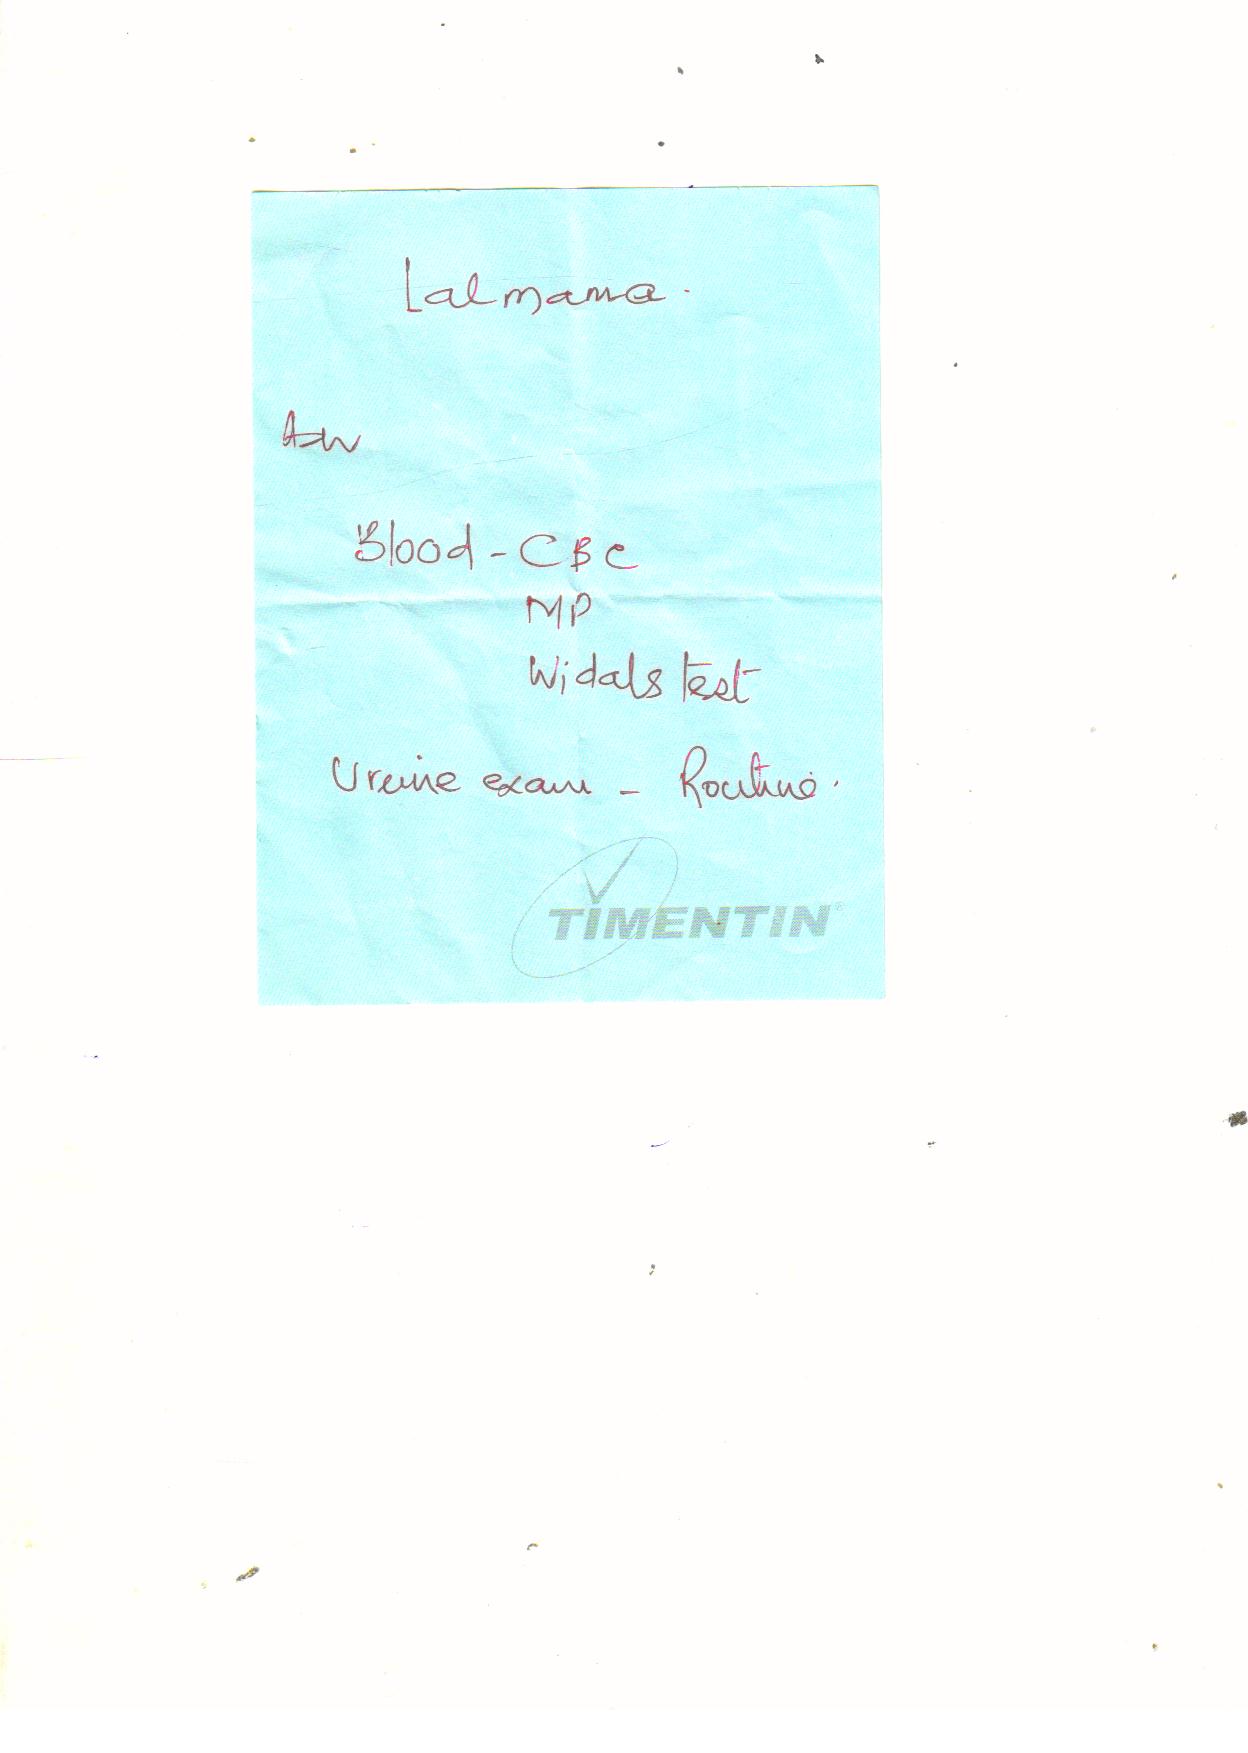 Lalmama.
Adv
Blood - CBC
MP
Widals test
Ureine exam - Routine.
TIMENTIN®